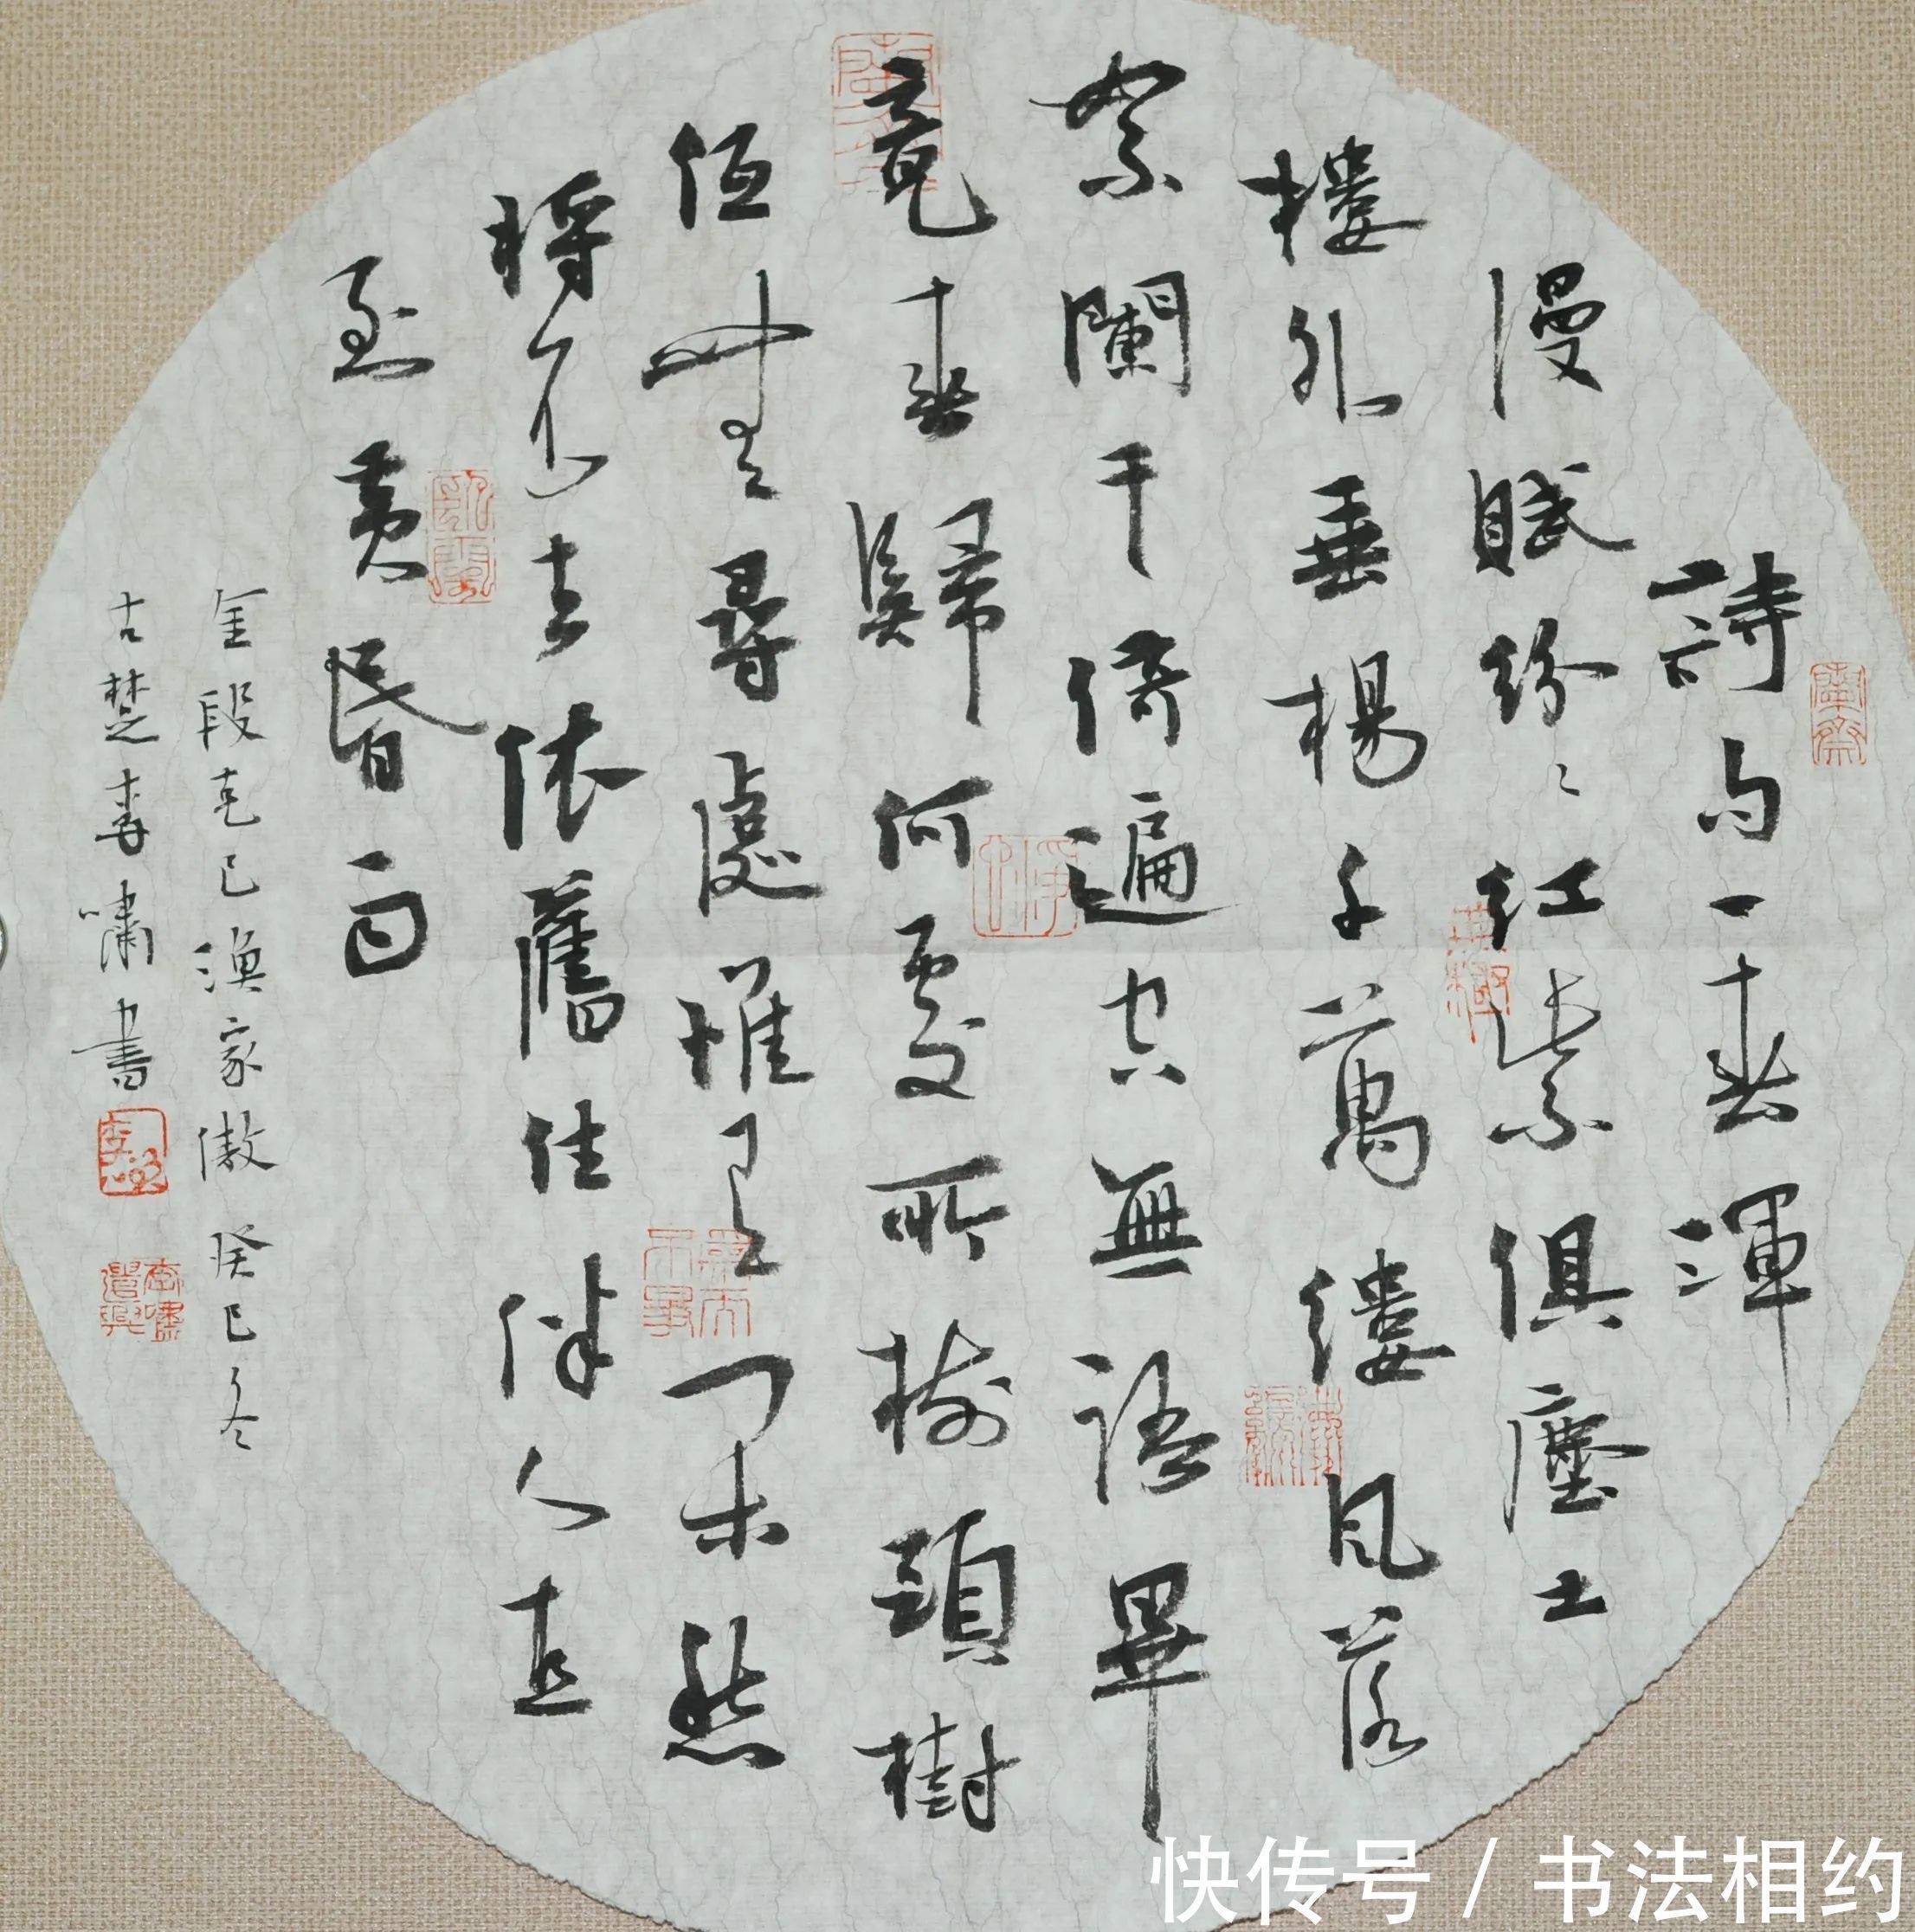 詩句一春渾
漫賦紛〻紅紫俱塵土
樓外垂楊千萬縷風落
絮闌干倚遍空無語畢
竟春歸何處所樹頭樹
低無尋處惟有閑愁
將不去依舊住伴人直
到黃昏雨
金段克己漁家傲 癸巳冬
古楚李嘯書
快传号 / 书法相约